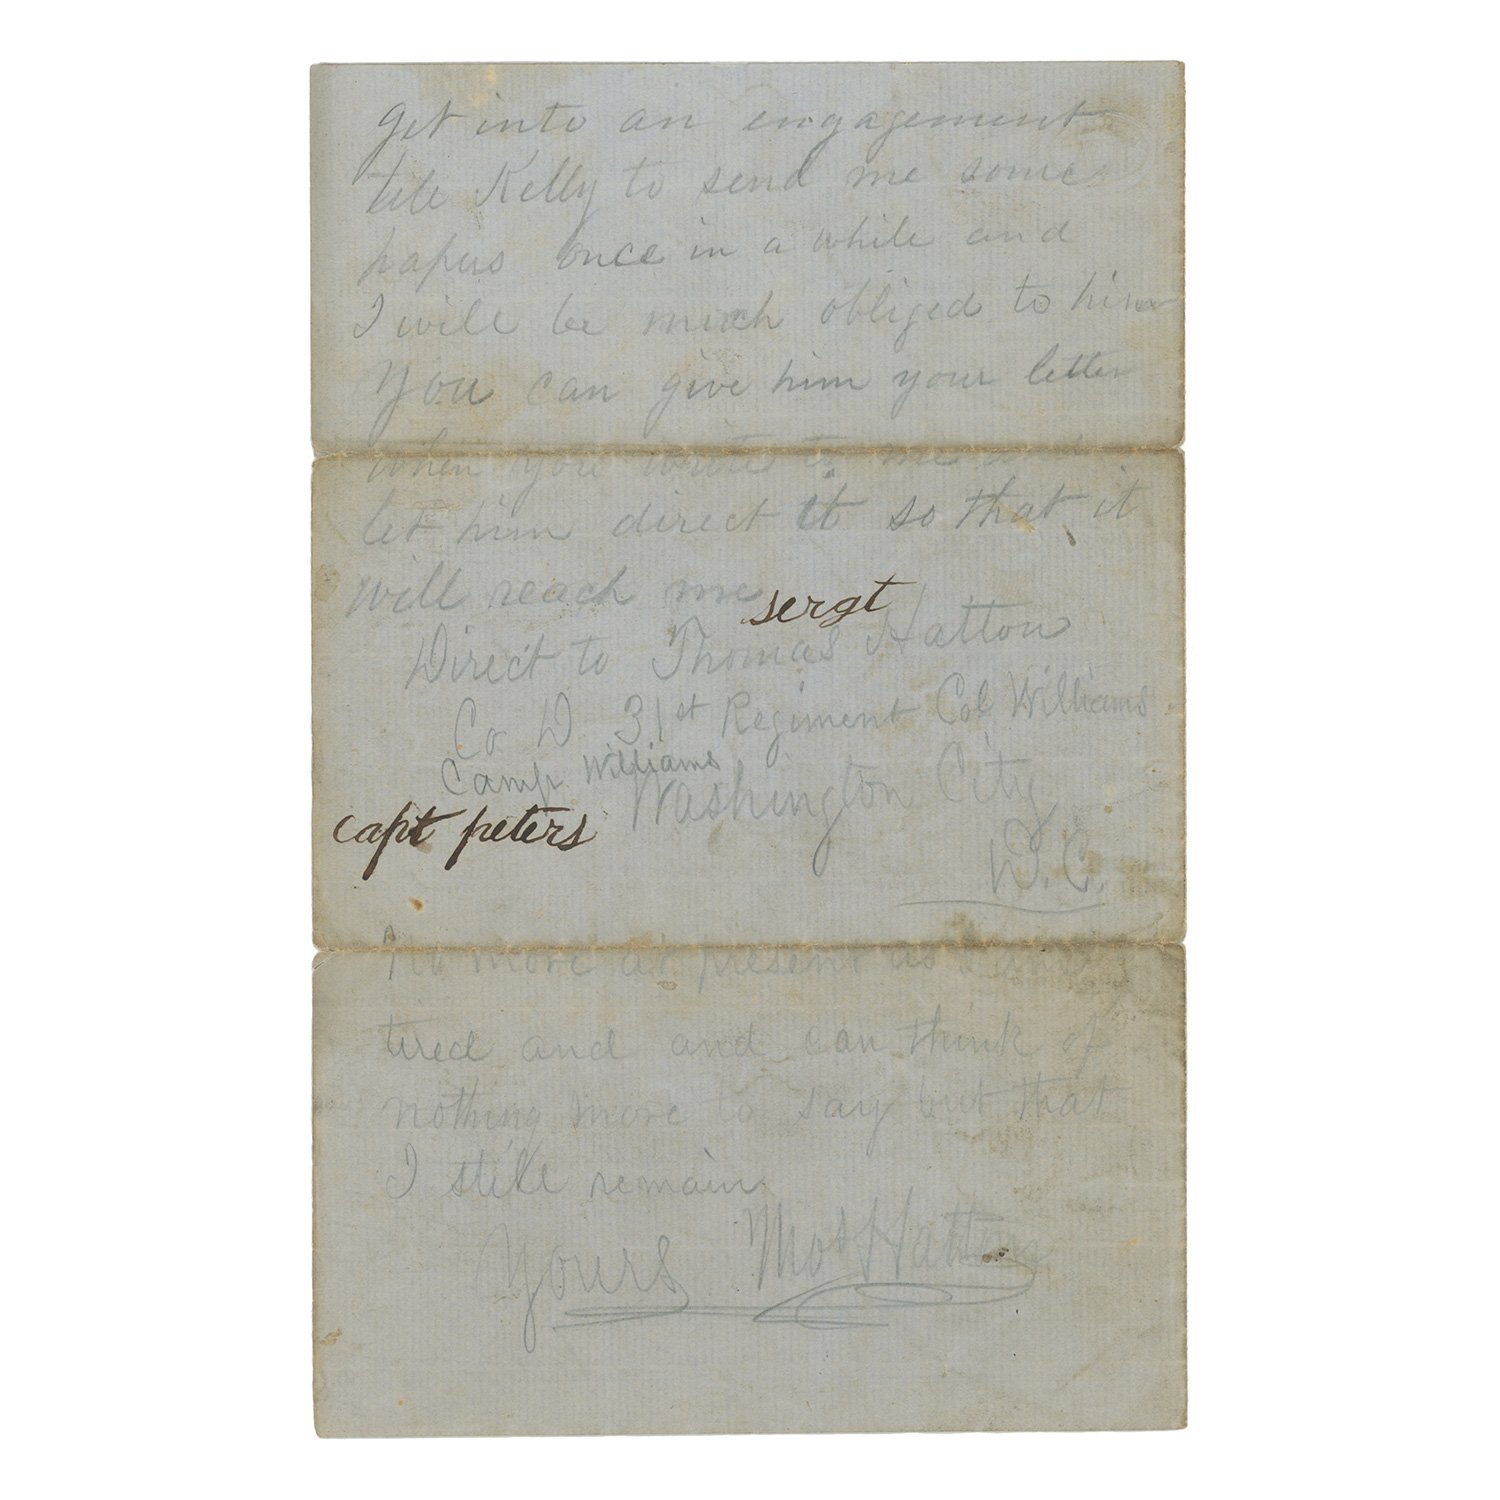 get into an engagement
tell Kelly to send me some
papers once in a while and
I will be much obliged to him
You can give him your letter
when you write to me and
let him direct it so that it
will reach me
sergt
Direct to Thomas Hatton
Co D 31st Regiment Col Williams
Camp Williams
Washington City
capt peters
D.C.
No more at present as I am
tired and and can think of
nothing more to say but that
I still remain
Yours Thos Hatton